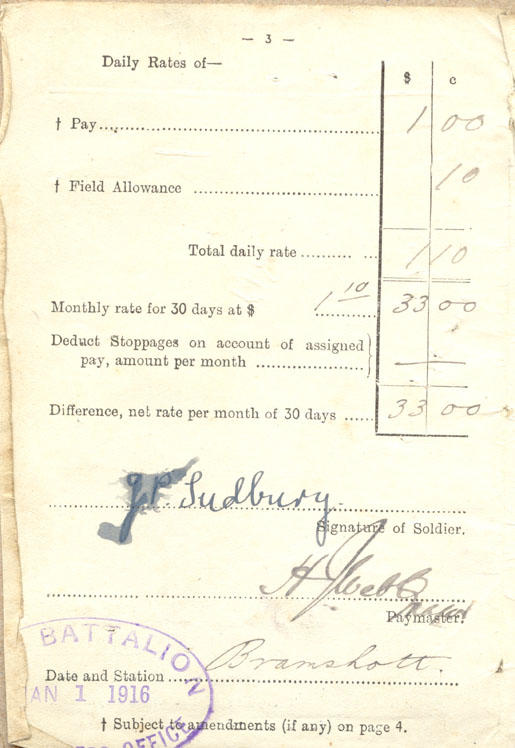 — 3 —
Daily Rates of—
$ c
† Pay 1 00
† Field Allowance 10
Total daily rate 1 10
Monthly rate for 30 days at $ 1 10 33 00
Deduct Stoppages on account of assigned
pay, amount per month —
Difference, net rate per month of 30 days 33 00
J P Sudbury.
Signature of Soldier.
H J Webb
Paymaster.
BATTALION
Date and Station Bramshott.
AN 1 1916
† Subject to amendments (if any) on page 4.
OFFICE